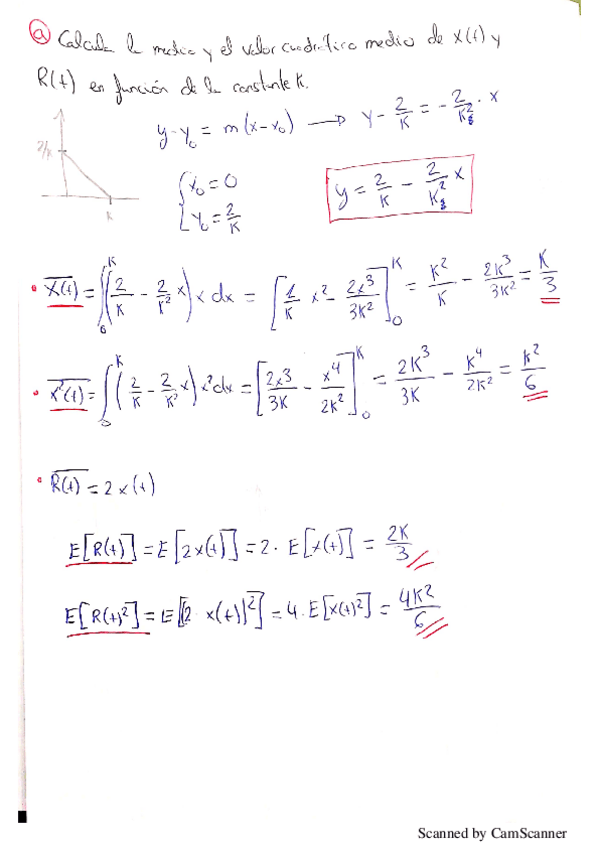 a) Calcula la media y el valor cuadrático medio de X(t) y
R(t) en función de la constante K.
2/K
K
y-y₀ = m(x-x₀) → y - 2/K = - 2/K² · x
{ x₀ = 0
y₀ = 2/K
y = 2/K - 2/K² x
• X(t)‾ = ∫₀ᴷ (2/K - 2/K² x) x dx = [1/K x² - 2x³/3K²]₀ᴷ = K²/K - 2K³/3K² = K/3
• X²(t)‾ = ∫₀ᴷ (2/K - 2/K² x) x² dx = [2x³/3K - x⁴/2K²]₀ᴷ = 2K³/3K - K⁴/2K² = K²/6
• R(t)‾ = 2x(t)
E[R(t)] = E[2x(t)] = 2 · E[x(t)] = 2K/3
E[R(t)²] = E[[2 x(t)]²] = 4 · E[x(t)²] = 4K²/6
Scanned by CamScanner